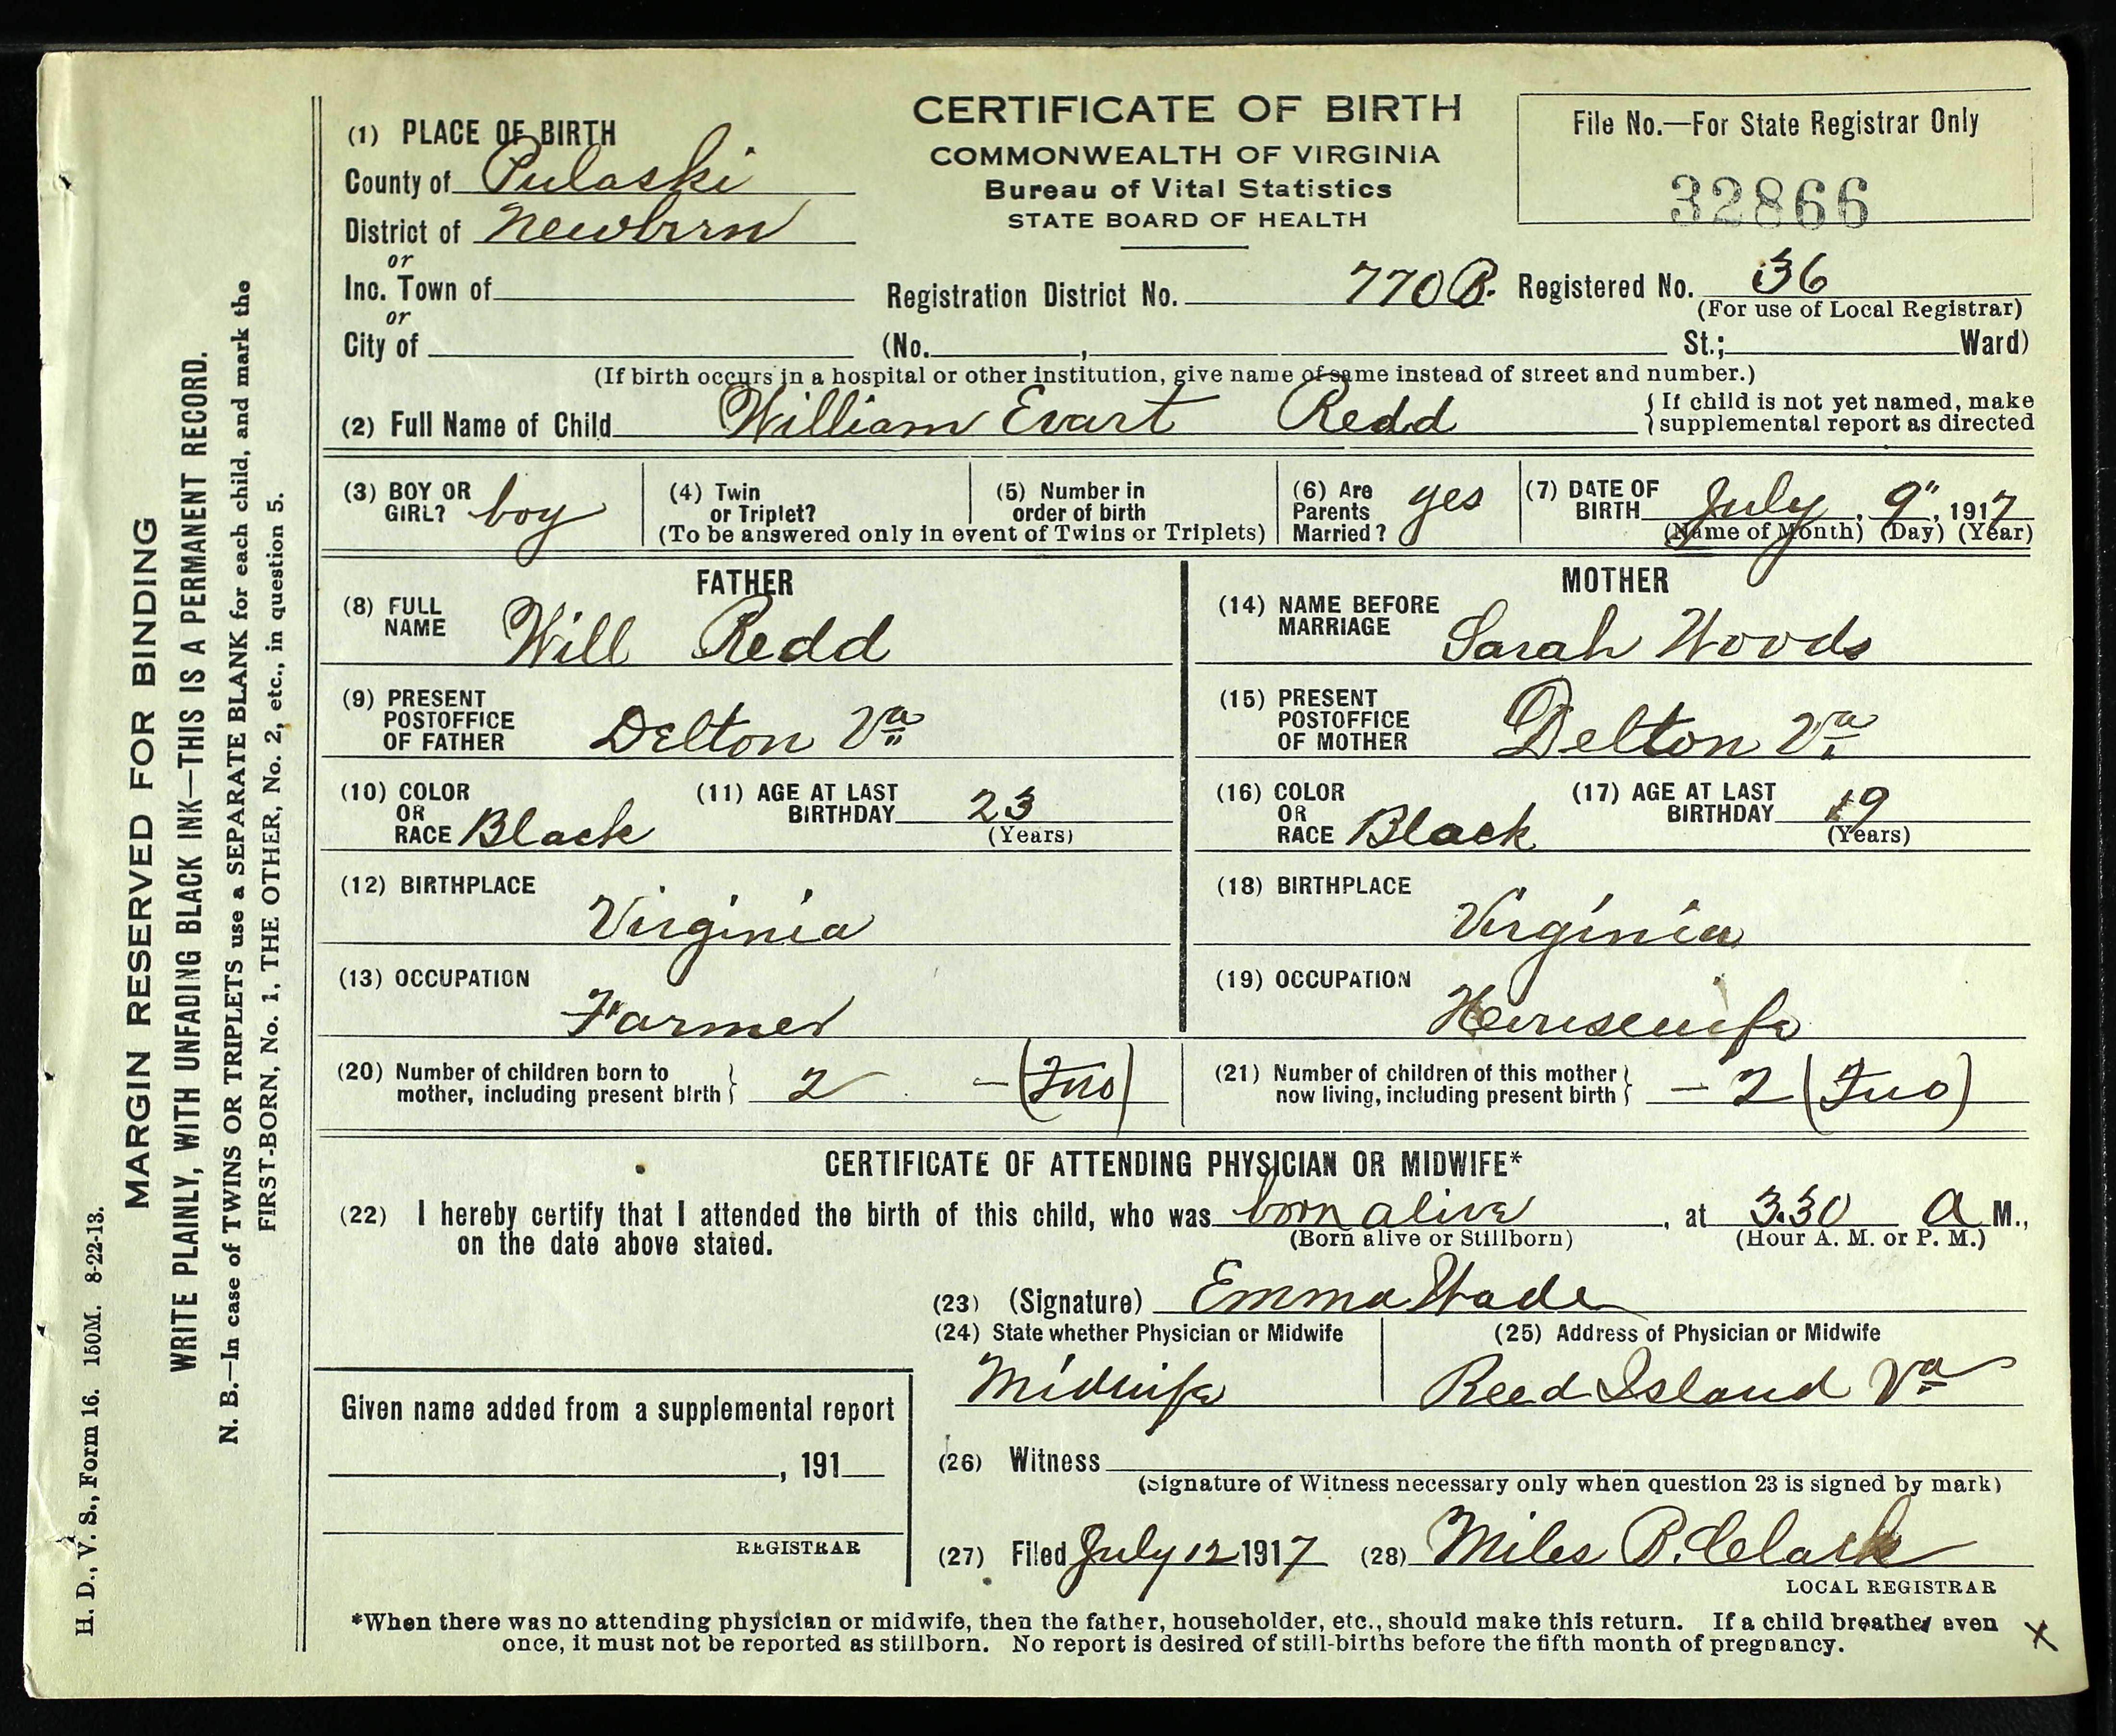 CERTIFICATE OF BIRTH
COMMONWEALTH OF VIRGINIA
Bureau of Vital Statistics
STATE BOARD OF HEALTH
File No.—For State Registrar Only
32866
(1) PLACE OF BIRTH
County of Pulaski
District of Newbern
or
Inc. Town of
or
City of
Registration District No. 770B. Registered No. 36
(For use of Local Registrar)
(No. , St.; Ward)
(If birth occurs in a hospital or other institution, give name of same instead of street and number.)
(2) Full Name of Child William Evart Redd
{If child is not yet named, make
supplemental report as directed
(3) BOY OR GIRL? boy
(4) Twin or Triplet?
(5) Number in order of birth
(To be answered only in event of Twins or Triplets)
(6) Are Parents Married? yes
(7) DATE OF BIRTH July, 9", 1917
(Name of Month) (Day) (Year)
FATHER
(8) FULL NAME Will Redd
(9) PRESENT POSTOFFICE OF FATHER Delton Va
(10) COLOR OR RACE Black (11) AGE AT LAST BIRTHDAY 23
(Years)
(12) BIRTHPLACE
Virginia
(13) OCCUPATION
Farmer
MOTHER
(14) NAME BEFORE MARRIAGE Sarah Woods
(15) PRESENT POSTOFFICE OF MOTHER Delton Va
(16) COLOR OR RACE Black (17) AGE AT LAST BIRTHDAY 19
(Years)
(18) BIRTHPLACE
Virginia
(19) OCCUPATION
Housewife
(20) Number of children born to
mother, including present birth} 2 – (Two)
(21) Number of children of this mother
now living, including present birth} – 2 (Two)
CERTIFICATE OF ATTENDING PHYSICIAN OR MIDWIFE*
(22) I hereby certify that I attended the birth of this child, who was born alive, at 3.30 A M.,
(Born alive or Stillborn) (Hour A. M. or P. M.)
on the date above stated.
(23) (Signature) Emma Wade
(24) State whether Physician or Midwife
Midwife
(25) Address of Physician or Midwife
Reed Island Va
Given name added from a supplemental report
, 191
REGISTRAR
(26) Witness
(Signature of Witness necessary only when question 23 is signed by mark)
(27) Filed July 12 1917 (28) Miles P. Clark
LOCAL REGISTRAR
*When there was no attending physician or midwife, then the father, householder, etc., should make this return. If a child breathes even
once, it must not be reported as stillborn. No report is desired of still-births before the fifth month of pregnancy.
X
H. D., V. S., Form 16. 150M. 8-22-13.
MARGIN RESERVED FOR BINDING
WRITE PLAINLY, WITH UNFADING BLACK INK—THIS IS A PERMANENT RECORD.
N. B.—In case of TWINS OR TRIPLETS use a SEPARATE BLANK for each child, and mark the
FIRST-BORN, No. 1, THE OTHER, No. 2, etc., in question 5.